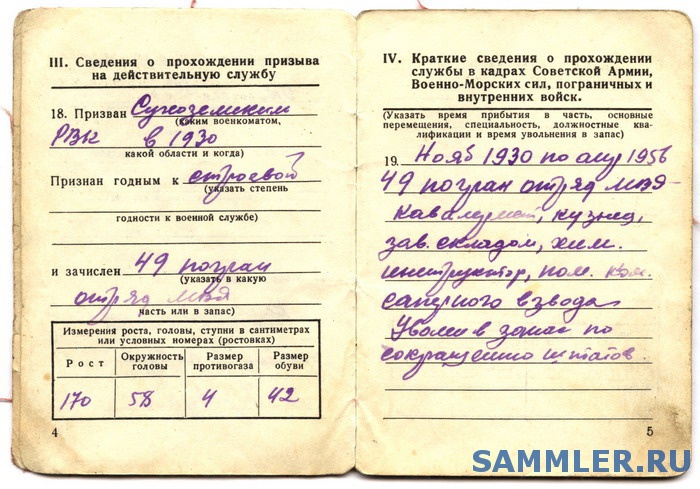 III. Сведения о прохождении призыва
на действительную службу
18. Призван Сухоземским
(каким военкоматом,
РВК в 1930
какой области и когда)
Признан годным к строевой
(указать степень
годности к военной службе)
и зачислен 49 погран
(указать в какую
отряд МВД
часть или в запас)
Измерения роста, головы, ступни в сантиметрах
или условных номерах (ростовках)
Рост Окружность головы Размер противогаза Размер обуви
170 58 4 42
4
IV. Краткие сведения о прохождении
службы в кадрах Советской Армии,
Военно-Морских сил, пограничных и
внутренних войск.
(Указать время прибытия в часть, основные
перемещения, специальность, должностные ква-
лификации и время увольнения в запас)
19. Нояб 1930 по апр 1956
49 погран отряд МВД
кавалерист, кузнец,
зав. складом, хим.
инструктор, пом. ком.
саперного взвода
Уволен в запас по
сокращению штатов.
5
SAMMLER.RU